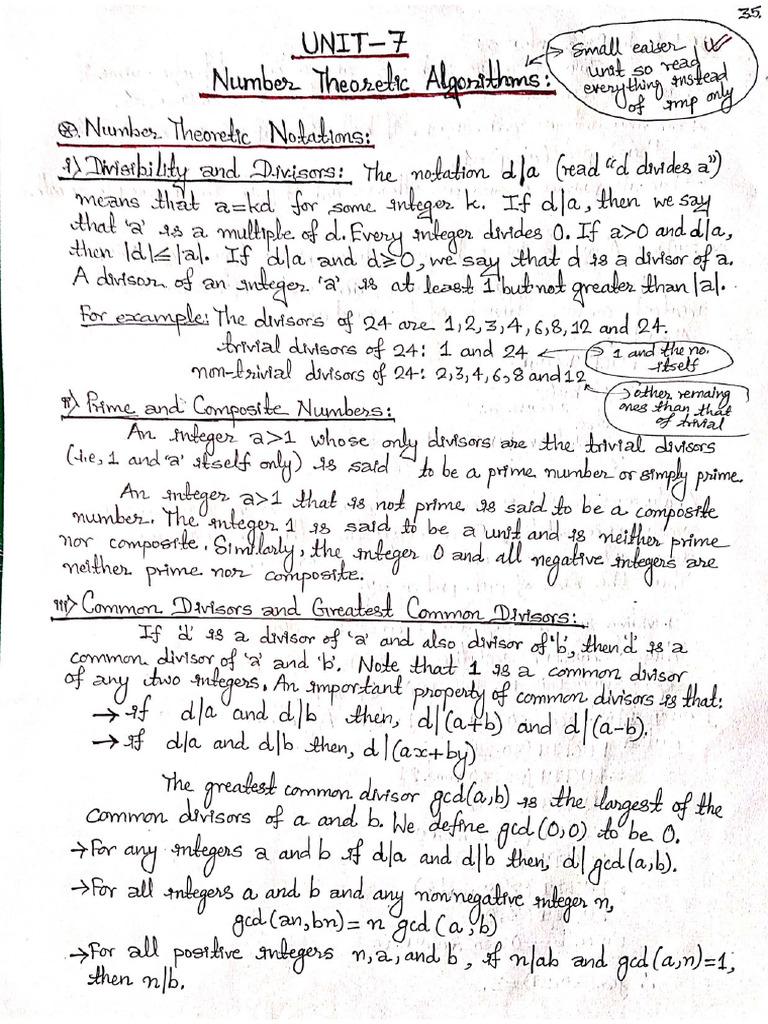 35.
UNIT-7
Number Theoretic Algorithms:
Small eaiser
unit so read
everything instead
of imp only
⊛. Number Theoretic Notations:
i) Divisibility and Divisors: The notation d/a (read "d divides a")
means that a=kd for some integer k. If d/a, then we say
that 'a' is a multiple of d. Every integer divides 0. If a>0 and d/a,
then |d|≤|a|. If d/a and d≥0, we say that d is a divisor of a.
A divisor of an integer 'a' is at least 1 but not greater than |a|.
For example: The divisors of 24 are 1,2,3,4,6,8,12 and 24.
trivial divisors of 24: 1 and 24
1 and the no.
itself
non-trivial divisors of 24: 2,3,4,6,8 and 12
other remaing
ones than that
of trivial
ii) Prime and Composite Numbers:
An integer a>1 whose only divisors are the trivial divisors
(i.e, 1 and 'a' itself only) is said to be a prime number or simply prime.
An integer a>1 that is not prime is said to be a composite
number. The integer 1 is said to be a unit and is neither prime
nor composite. Similarly, the integer 0 and all negative integers are
neither prime nor composite.
iii) Common Divisors and Greatest Common Divisors:
If 'd' is a divisor of 'a' and also divisor of 'b', then 'd' is a
common divisor of 'a' and 'b'. Note that 1 is a common divisor
of any two integers. An important property of common divisors is that:
→ if d/a and d/b then, d|(a+b) and d|(a-b).
→ if d/a and d/b then, d|(ax+by)
The greatest common divisor gcd(a,b) is the largest of the
common divisors of a and b. We define gcd(0,0) to be 0.
→ For any integers a and b if d/a and d/b then, d| gcd(a,b).
→ For all integers a and b and any nonnegative integer n,
gcd(an,bn)= n gcd(a,b)
→ For all positive integers n, a, and b, if n/ab and gcd(a,n)=1,
then n/b.